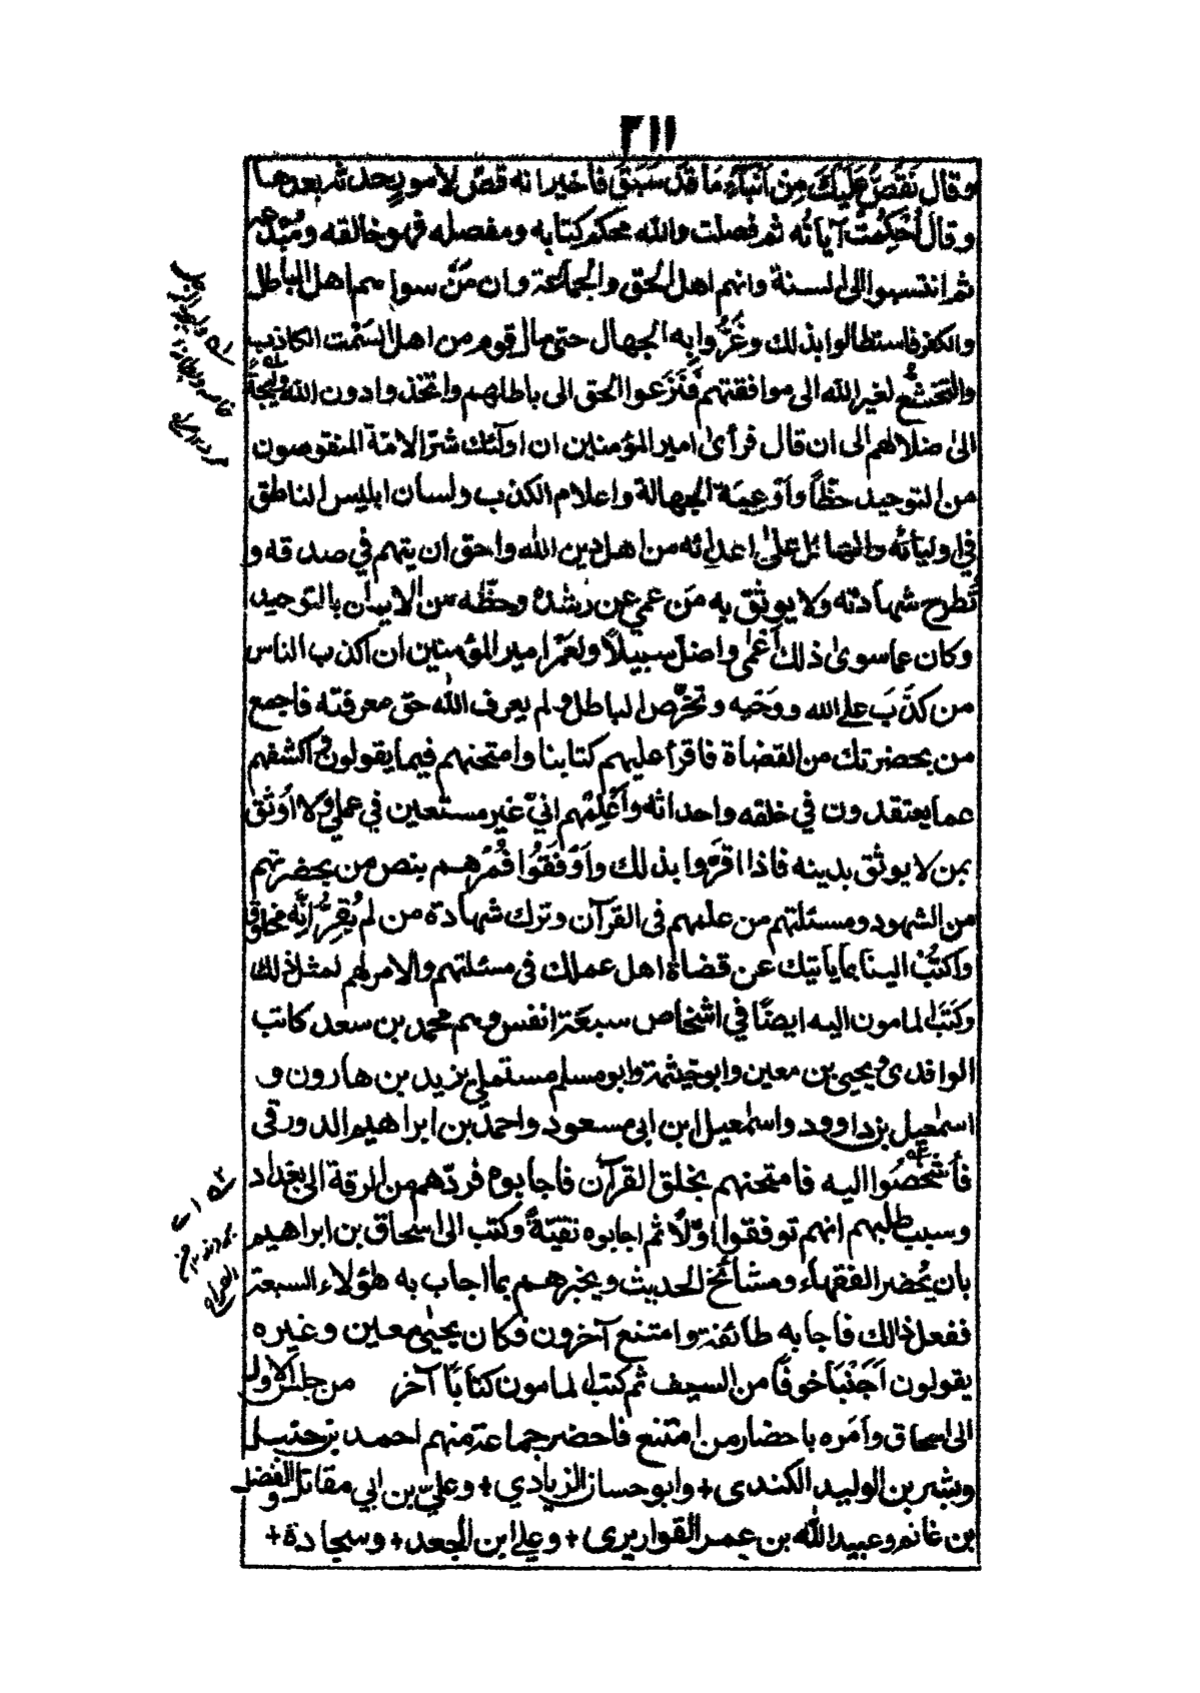 ٣١١
وقال نَقُصُّ عَلَيْكَ مِنْ اَنْبَآءِ مَا قَدْ سَبَقَ فاخبر انه قصّ لامورٍ يحدث بعدها
وقال اُحْكِمَتْ آيَاتُه ثم فصلت والله محكم كتابه ومفصله فهو خالقه ومُبْدِ عه
ثم انتسبوا الى السنة وانهم اهل الحق والجماعة وان مَنْ سواهم اهل الباطل
والكفر فاستطالوا بذلك وغَرُّوا به الجهال حتى مال قوم من اهل السَمْت الكاذب
والتخشُّع لغير الله الى موافقتهم فَنَزَعوا الحق الى باطلهم واتخذوا دون الله وليجةً
الى ضلالهم الى ان قال فرأى امير المؤمنين ان اولئك شرّ الامّة المنقوصون
من التوحيد حظّاً وَاَوْعِيَة الجهالة واعلام الكذب ولسان ابليس الناطق
في اوليائه والهائل على اعدائه من اهل دين الله واحق ان يتهم في صدقه و
تُطرح شهادته ولا يوثق به مَن عمي عن رشده وحظّه من الايمان بالتوحيد
وكان عما سوى ذلك اَعْمٰى واضلّ سبيلًا ولعَمْرُ امير المؤمنين ان اكذب الناس
من كذَبَ على الله ووَحْيه وتخرّص الباطل ولم يعرف الله حق معرفته فاجمع
من بحضرتك من القضاة فاقرأ عليهم كتابنا وامتحنهم فيما يقولون واكشفهم
عما يعتقدون في خلقه واحداثه وَاَعْلِمْهم انيّ غير مستعين في عملي ولا اُوَثق
بمن لا يوثق بدينه فاذا اقرّوا بذلك وَاَوْفَقُوا فُمُرْهم بنص من بحضرتهم
من الشهود ومسئلتهم عن علمهم فى القرآن وترك شهادة من لم يُقِرّ اَنّه مخلوق
وَاكتُبْ الينا بما يأتيك عن قضاة اهل عملك في مسئلتهم والامر لهم لمثل ذلك
وكَتَبَ المامون اليه ايضًا في اشخاص سبعَة انفس وهم محمد بن سعد كاتب
الواقدى ويحيى بن معين وابو خيثمة وابو مسلم مستملى يزيد بن هارون و
اسمٰعيل بن داوود واسمٰعيل ابن ابى مسعود واحمد بن ابراهيم الدورقى
فأُشْخِصُوا اليه فامتحنهم بخلق القرآن فاجابوه فردّهم من الرقة الى بغداد
وسبب طلبهم انهم توقفوا اوّلًا ثم اجابوه تقيّةً وكتب الى اسحاق بن ابراهيم
بان يُحْضر الفقهاء ومشائخ الحديث ويخبرهم بما اجاب به هٰؤلاء السبعة
ففعل ذالك فاجابه طائفة وامتنع آخرون فكان يحيٰى معين وغيره
يقولون اَجَبْنَا خوفًا من السيف ثم كتب المامون كتابًا آخر من جنس الاول
الى اسحاق وَاَمَره باحضار من امتنع فاحضر جماعة منهم احمد بن حنبل
وبشر بن الوليد الكندى + وابو حسان الزيادي + وعليّ بن ابي مقاتل والفضل
بن غانم وعبيد الله بن عمر القواريرى + وعلى ابن الجعد + وسجادة +